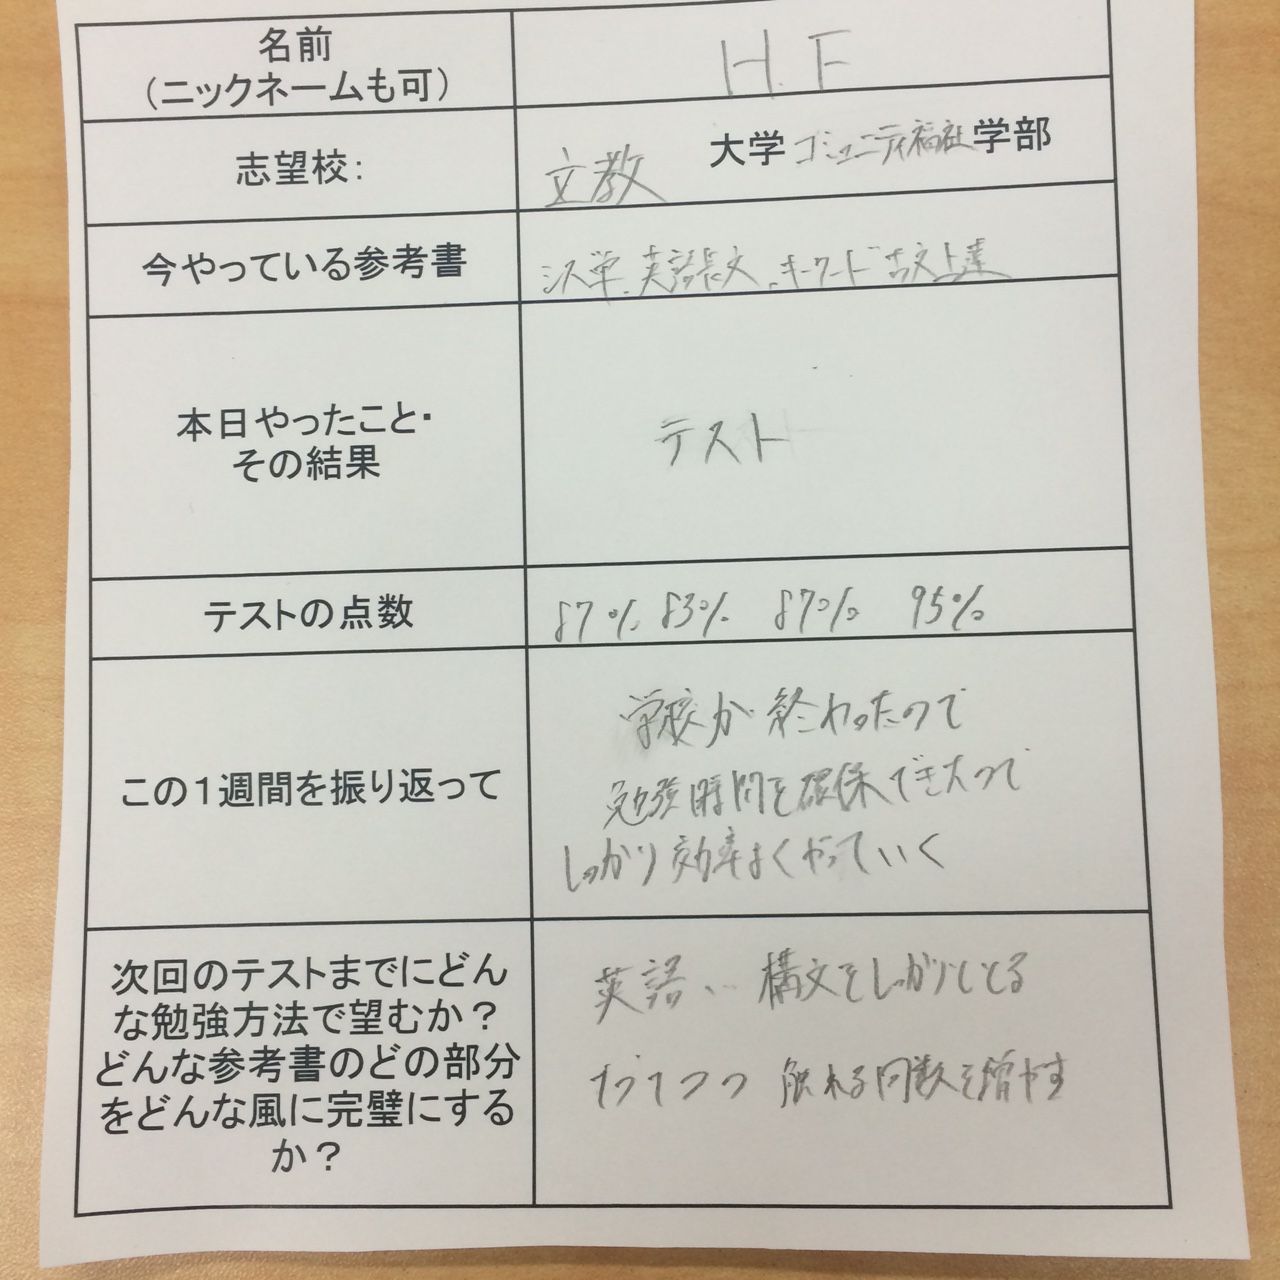 名前
(ニックネームも可)
H.F
志望校:
文教 大学 コミュニティ福祉 学部
今やっている参考書
シス単、英語長文、キーワード 古文上達
本日やったこと・
その結果
テスト
テストの点数
87% 83% 87% 95%
この１週間を振り返って
学校が終わったので
勉強時間を確保でき
しっかり効率よくやっていく
次回のテストまでにどん
な勉強方法で望むか？
どんな参考書のどの部分
をどんな風に完璧にする
か？
英語、構文をしっかりととる
触れる回数を増やす